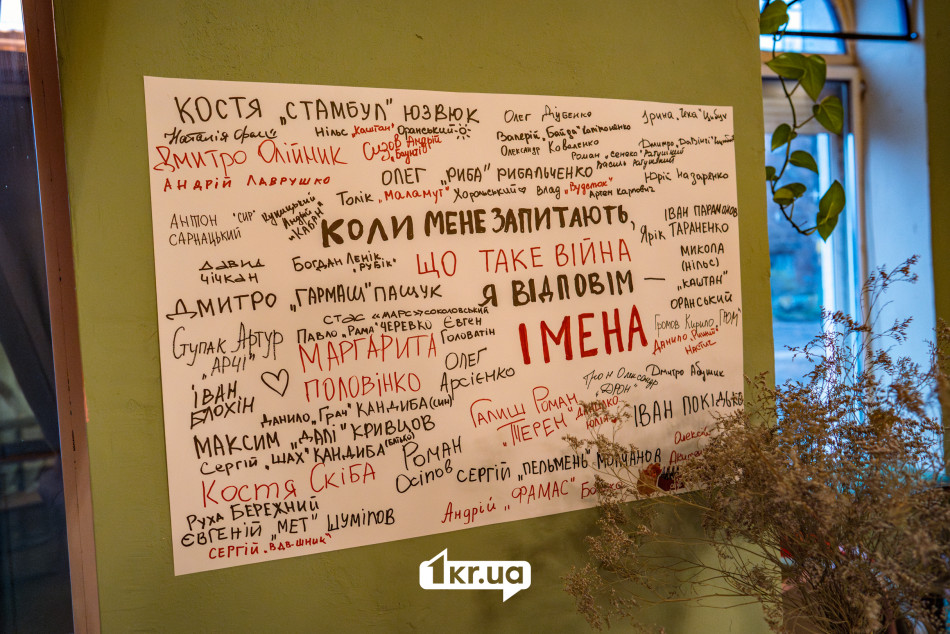 КОСТЯ „СТАМБУЛ" ЮЗВЮК
Олег Дубенко
Ірина „Іка" Цибух
Наталія
Нільс „Каштан" Оранський
Валерій „Байда"
Дмитро Олійник
Сизов Андрій
Олександр Коваленко
Дмитро „ДаВінчі"
АНДРІЙ ЛАВРУШКО
ОЛЕГ „РИБА" РИБАЛЬЧЕНКО
Роман „Сенека" Ратушний
Василь Ратушний
Юрій Назаренко
Толік „Маламут" Хорольський
Влад „Вуделок"
Артан Карпович
АНТОН "СИР" САРНАЦЬКИЙ
Андрій "КАБАН"
КОЛИ МЕНЕ ЗАПИТАЮТЬ,
ІВАН ПАРАМОНОВ
Ярік ТАРАНЕНКО
ДАВИД ЧІЧКАН
Богдан Ленік "РУБІК"
ЩО ТАКЕ ВІЙНА
МИКОЛА (НІЛЬС) „КАШТАН" ОРАНСЬКИЙ
ДМИТРО „ГАРМАШ" ПАЩУК
Я ВІДПОВІМ —
СТАС «МАРС» СОКОЛОВСЬКИЙ
ІМЕНА
Ступак Артур "АРЧІ"
Павло „Рама" ЧЕРЕВКО
Євген Головатін
Громов Кирило „ГРОМ"
МАРГАРИТА ПОЛОВІНКО
ОЛЕГ Арсієнко
Данило
ІВАН БЛОХІН
Дмитро Абушик
Трон Олександр
Данило „Грач" КАНДИБА (син)
Галиш Роман „ТЕРЕН"
ІВАН
МАКСИМ „ДАЛІ" КРИВЦОВ
Сергій „Шах" КАНДИБА
РОМАН Осіпов
СЕРГІЙ „ПЕЛЬМЕНЬ" МОЛЧАНОВ
Костя Скіба
Андрій „ФАМАС"
Руха БЕРЕЖНИЙ
ЄВГЕНІЙ "МЕТ" ШУМІЛОВ
СЕРГІЙ „ВДВ-шник"
1kr.ua